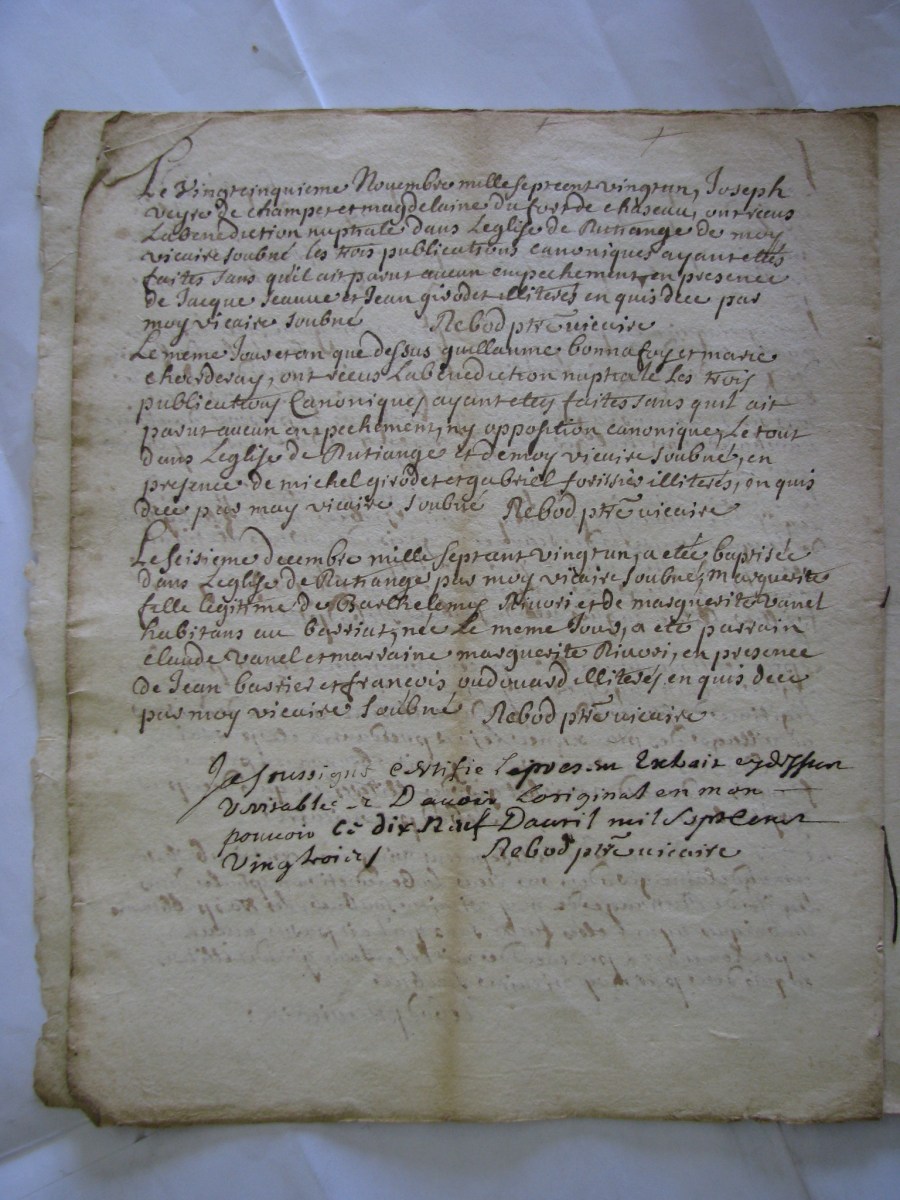 Le vingtcinquieme Novembre mille septcent vingtun, Joseph
veyre de champet et magdelaine du fort de chaseau, ont receus
La benediction nuptiale dans Leglise de Rutiange de moy
vicaire soubné les trois publications canoniques ayant etés
faites sans qu'il ait parut aucun empechement, en presence
de Jacque Jeanne et Jean girodet illiterés enquis dece par
moy vicaire soubné Rebod ptre vicaire
Le meme Jour et an que dessus guillaume bonnafoy et marie
ont receus La benediction nuptiale Les trois
publications Canoniques ayant etés faites sans quil ait
parut aucun enpechement, ny opposition canonique, Le tout
dans Leglise de Rutiange et de moy vicaire soubné, en
presence de michel girodet et gabriel illiterés, enquis
dece par moy vicaire soubné Rebod ptre vicaire
Le seisieme decembre mille septcent vingtun, a eté baptisée
dans Leglise de Rutiange par moy vicaire soubné, marguerite
fille legitime de Barthelemy et de marguerite vanel
habitans au barriat, née Le meme Jour, a eté parrain
claude vanel et marraine marguerite en presence
de Jean barrier et francois oudouard illiterés, enquis dece
par moy vicaire soubné Rebod ptre vicaire
Je soussigné certifie Le present Extrait cy dessus
veritable et Davoir Loriginal en mon
pouvoir ce dix Neuf Davril mil Sept cent
Vingtrois Rebod ptre vicaire